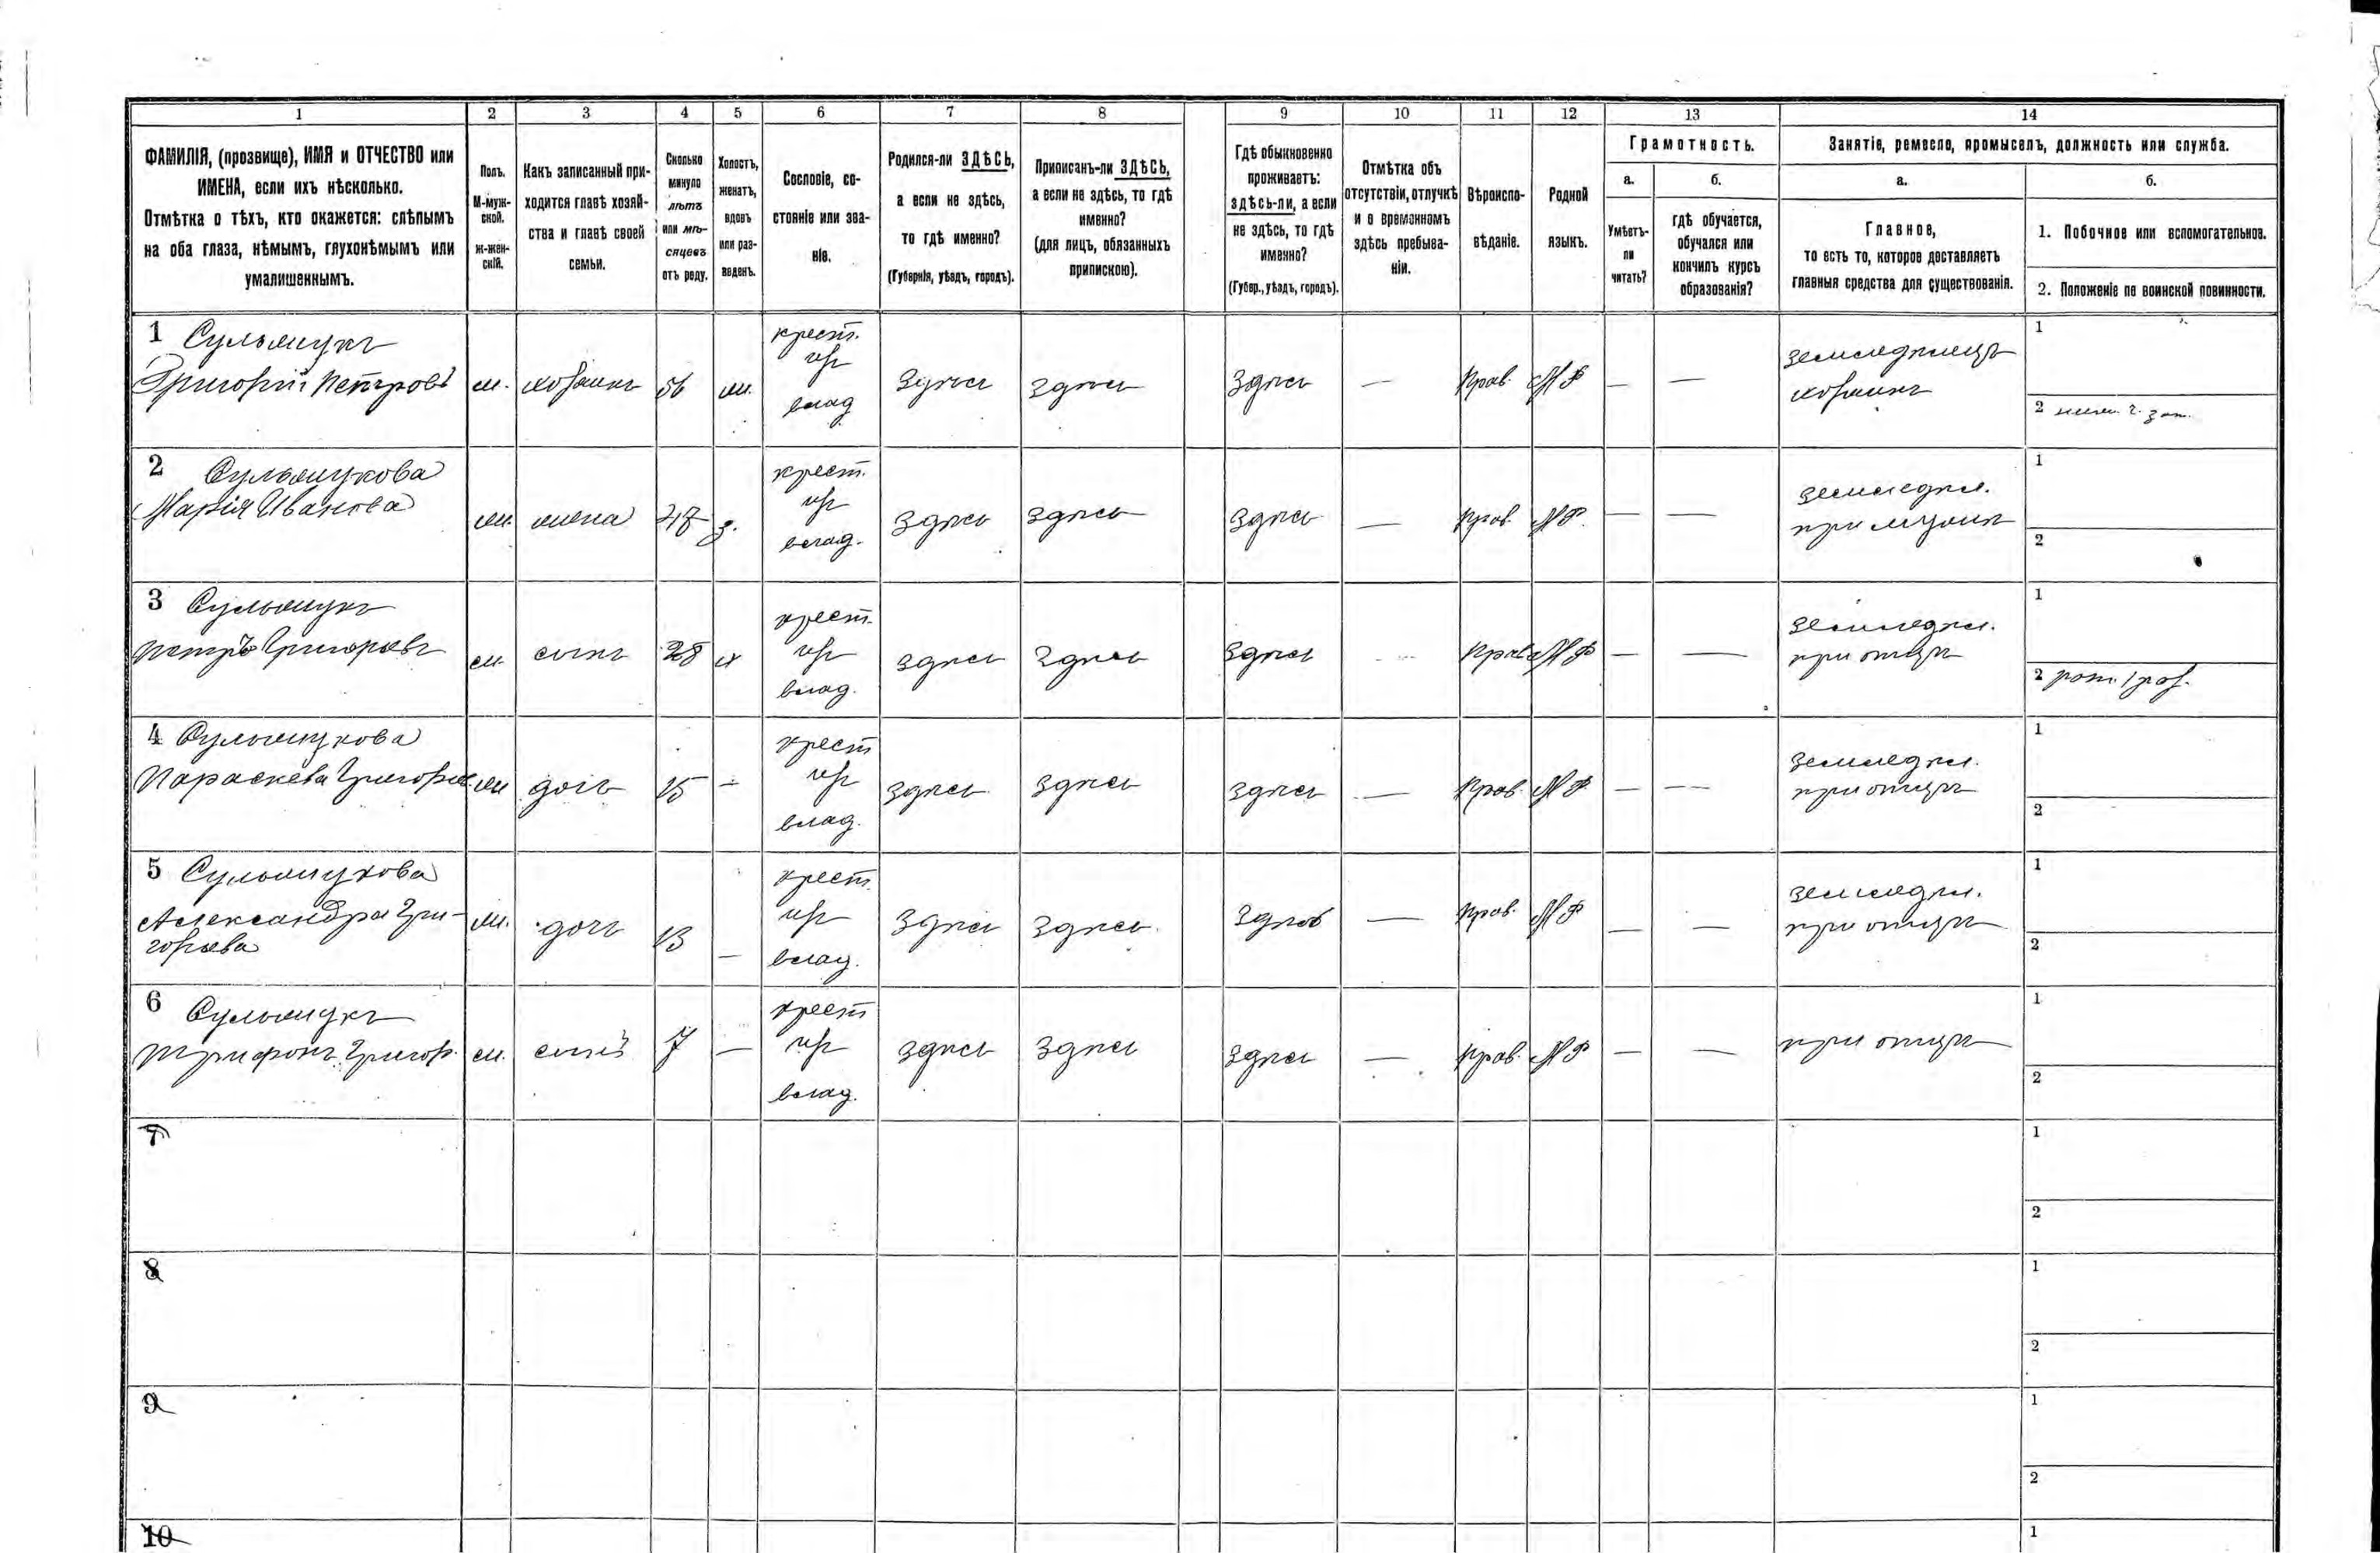 1 2 3 4 5 6 7 8 9 10 11 12 13 14
ФАМИЛІЯ, (прозвище), ИМЯ и ОТЧЕСТВО или
ИМЕНА, если ихъ нѣсколько.
Отмѣтка о тѣхъ, кто окажется: слѣпымъ
на оба глаза, нѣмымъ, глухонѣмымъ или
умалишеннымъ.
Полъ.
М-муж-
ской.
ж-жен-
скій.
Какъ записанный при-
ходится главѣ хозяй-
ства и главѣ своей
семьи.
Сколько
минуло
лѣтъ
или мѣ-
сяцевъ
отъ роду.
Холостъ,
женатъ,
вдовъ
или раз-
веденъ.
Сословіе, со-
стояніе или зва-
ніе.
Родился-ли ЗДѢСЬ,
а если не здѣсь,
то гдѣ именно?
(Губернія, уѣздъ, городъ).
Приписанъ-ли ЗДѢСЬ,
а если не здѣсь, то гдѣ
именно?
(для лицъ, обязанныхъ
припискою).
Гдѣ обыкновенно
проживаетъ:
здѣсь-ли, а если
не здѣсь, то гдѣ
именно?
(Губер., уѣздъ, городъ).
Отмѣтка объ
отсутствіи, отлучкѣ
и о временномъ
здѣсь пребыва-
ніи.
Вѣроиспо-
вѣданіе.
Родной
языкъ.
Грамотность.
а.
Умѣетъ-
ли
читать?
б.
гдѣ обучается,
обучался или
кончилъ курсъ
образованія?
Занятіе, ремесло, промыселъ, должность или служба.
а.
Главное,
то есть то, которое доставляетъ
главныя средства для существованія.
б.
1. Побочное или вспомогательное.
2. Положеніе по воинской повинности.
1
Григорій Петровъ
м. хозяинъ 56 ж.
крест.
влад.
здѣсь здѣсь здѣсь — Прав. — —
земледѣлецъ
хозяинъ
1
2
2
Марія Иванова
ж. жена з.
крест.
влад.
здѣсь здѣсь здѣсь — Прав. — —
земледѣл.
при мужѣ
1
2
3
Петръ Григорьевъ
м. сынъ 28 х
крест.
влад.
здѣсь здѣсь здѣсь — Прав. — —
земледѣл.
при отцѣ
1
2
4
Параскева
ж дочь 15 —
крест
влад.
здѣсь здѣсь здѣсь — Прав. — —
земледѣл.
при отцѣ
1
2
5
Александра Гри-
горьева
ж. дочь 13 —
крест.
влад.
здѣсь здѣсь здѣсь — Прав. — —
земледѣл.
при отцѣ
1
2
6
Трифонъ Григор.
м. сынъ 7 —
крест
влад.
здѣсь здѣсь здѣсь — Прав. — —
при отцѣ
1
2
7
1
2
8
1
2
9
1
2
10
1